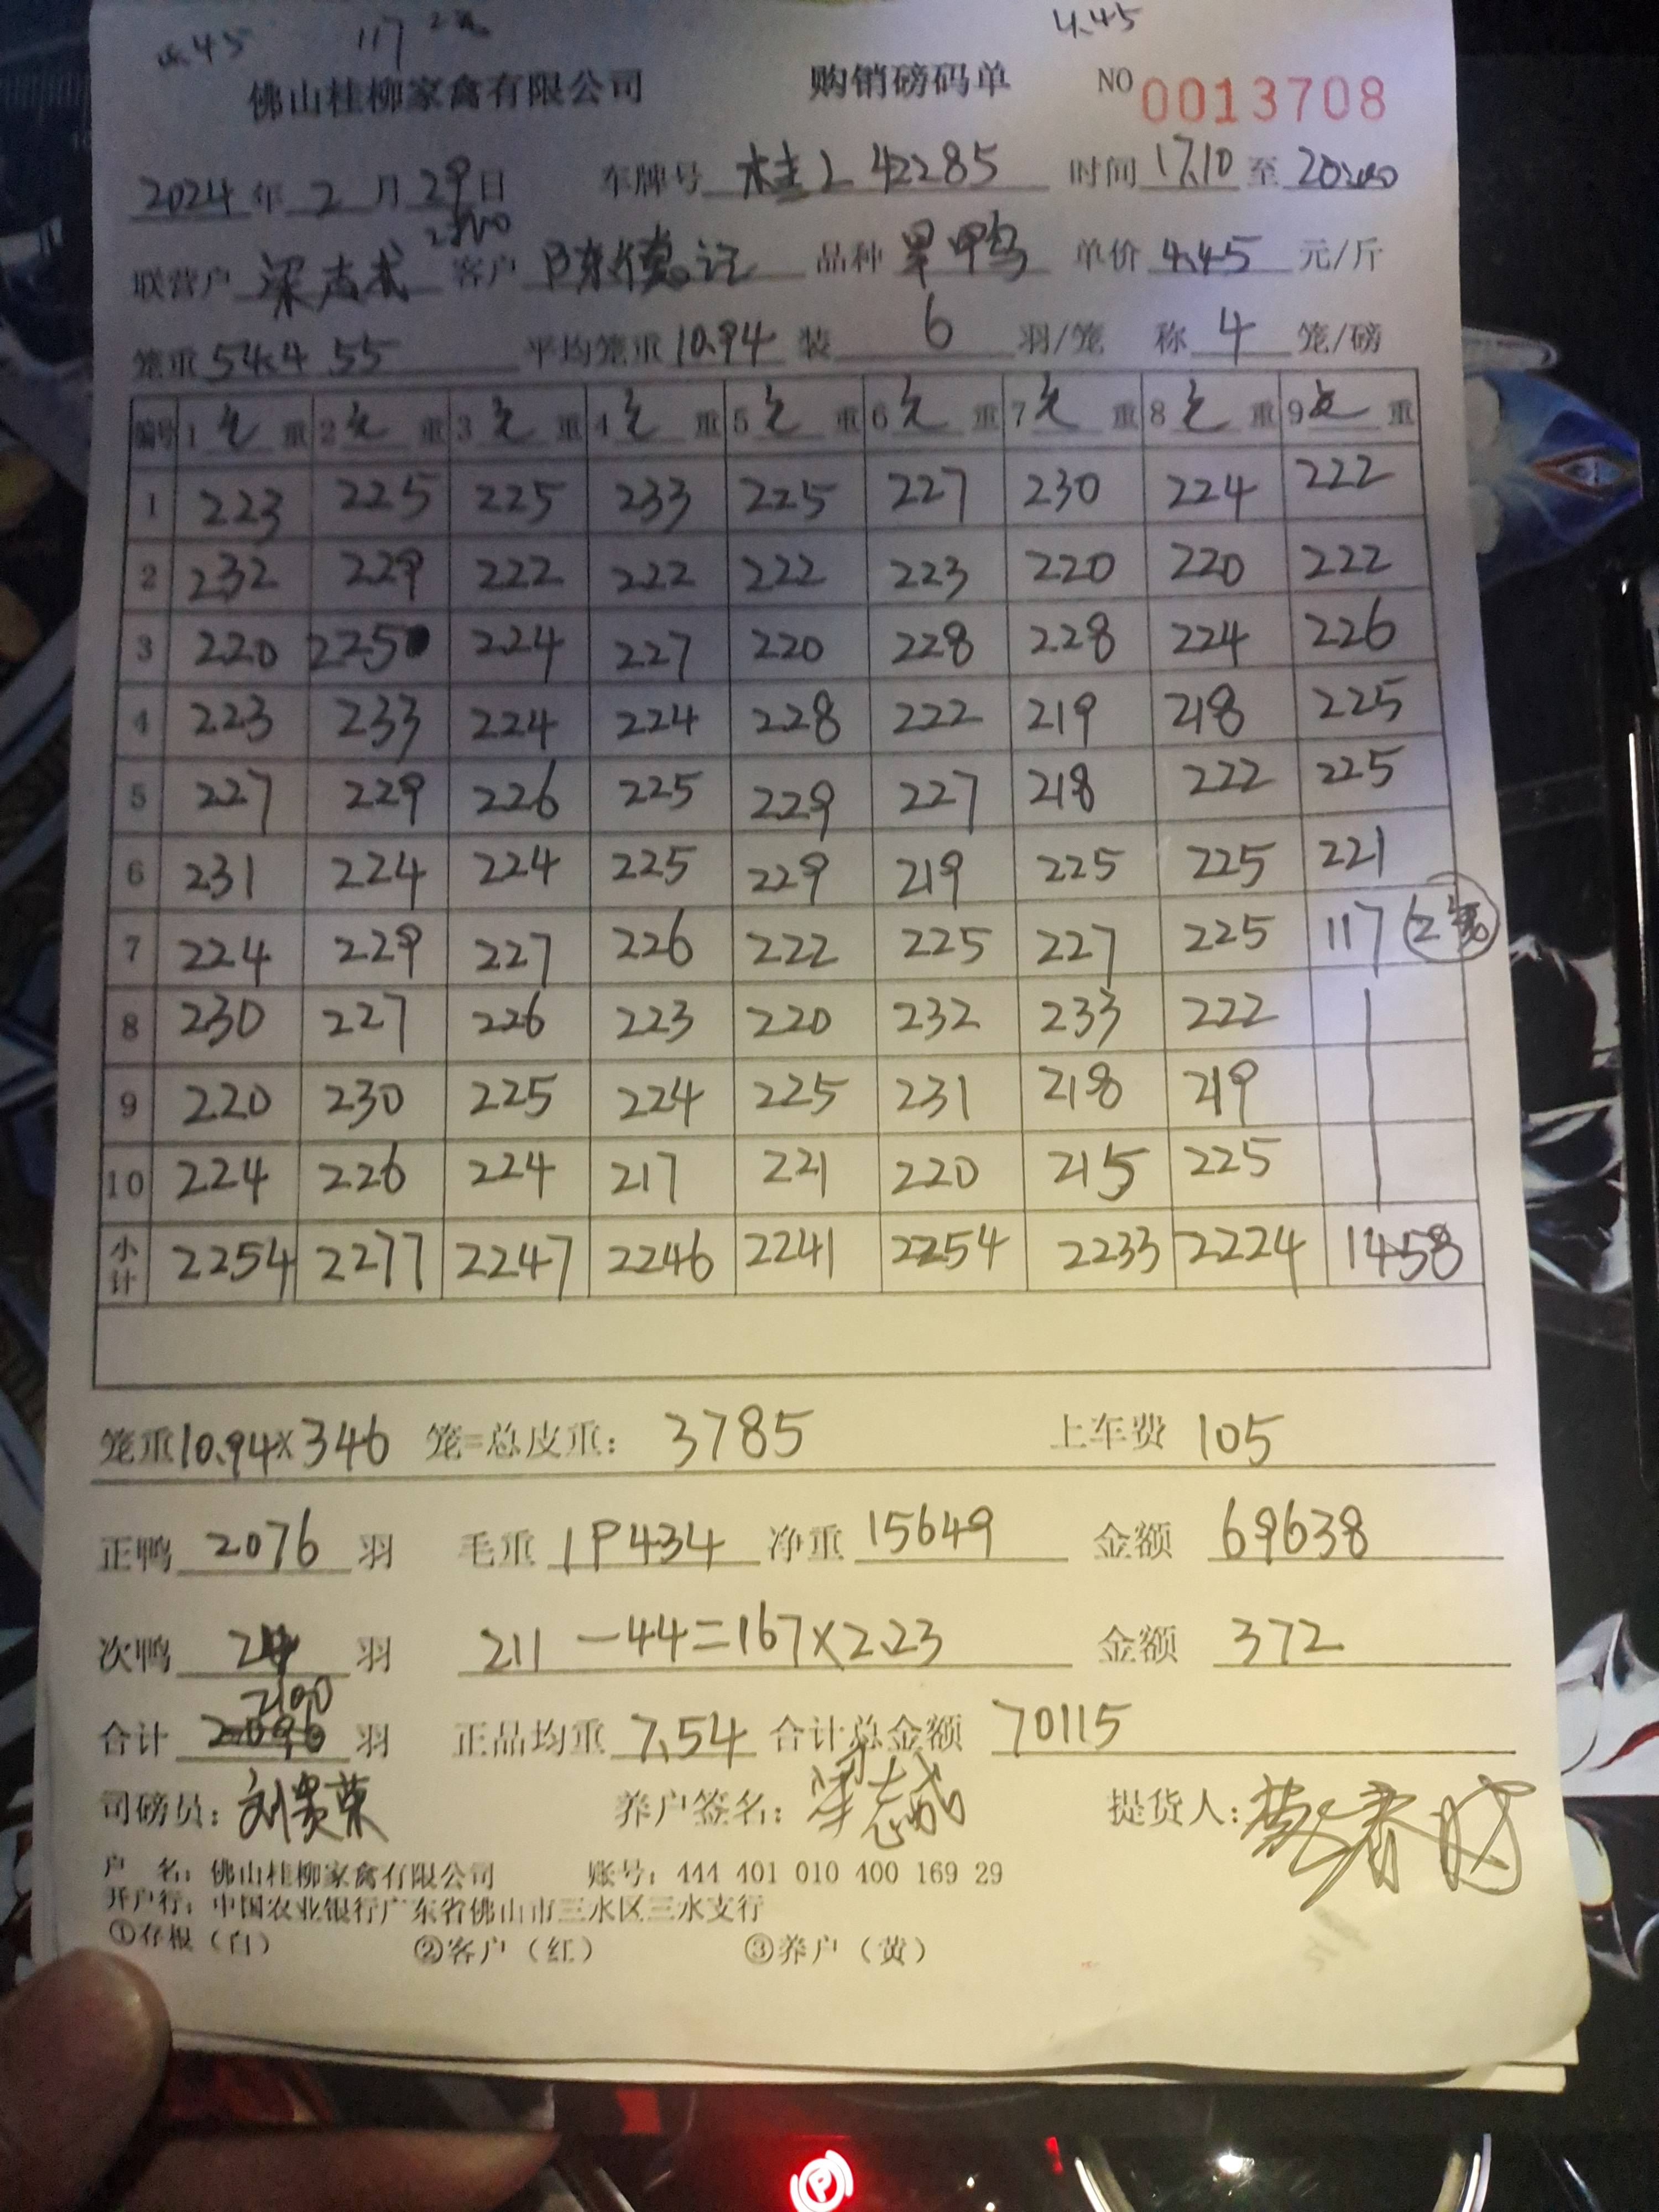 4.45 117 2笼 4.45
佛山桂柳家禽有限公司 购销磅码单 NO 0013708
2024 年 2 月 29 日 车牌号 桂L 42285 时间 17.10 至
联营户 梁志成 客户 陈德记 品种 单价 4.45 元/斤
笼重 54.4 55 平均笼重 10.94 装 6 羽/笼 称 4 笼/磅
编号 1 毛 重 2 毛 重 3 毛 重 4 毛 重 5 毛 重 6 毛 重 7 毛 重 8 毛 重 9 毛 重
1 223 225 225 233 225 227 230 224 222
2 232 229 222 222 222 223 220 220 222
3 220 225 224 227 220 228 228 224 226
4 223 233 224 224 228 222 219 218 225
5 227 229 226 225 229 227 218 222 225
6 231 224 224 225 229 219 225 225 221
7 224 229 227 226 222 225 227 225 117 2笼
8 230 227 226 223 220 232 233 222
9 220 230 225 224 225 231 218 219
10 224 226 224 217 221 220 215 225
小计 2254 2277 2247 2246 2241 2254 2233 2224 1458
笼重 10.94×346 笼=总皮重: 3785 上车费 105
正鸭 2076 羽 毛重 19434 净重 15649 金额 69638
次鸭 24 羽 211 -44=167×2.23 金额 372
2100
合计 2096 羽 正品均重 7.54 合计总金额 70115
司磅员: 刘贵荣 养户签名: 梁志成 提货人:
户 名: 佛山桂柳家禽有限公司 账号: 444 401 010 400 169 29
开户行: 中国农业银行广东省佛山市三水区三水支行
①存根（白） ②客户（红） ③养户（黄）